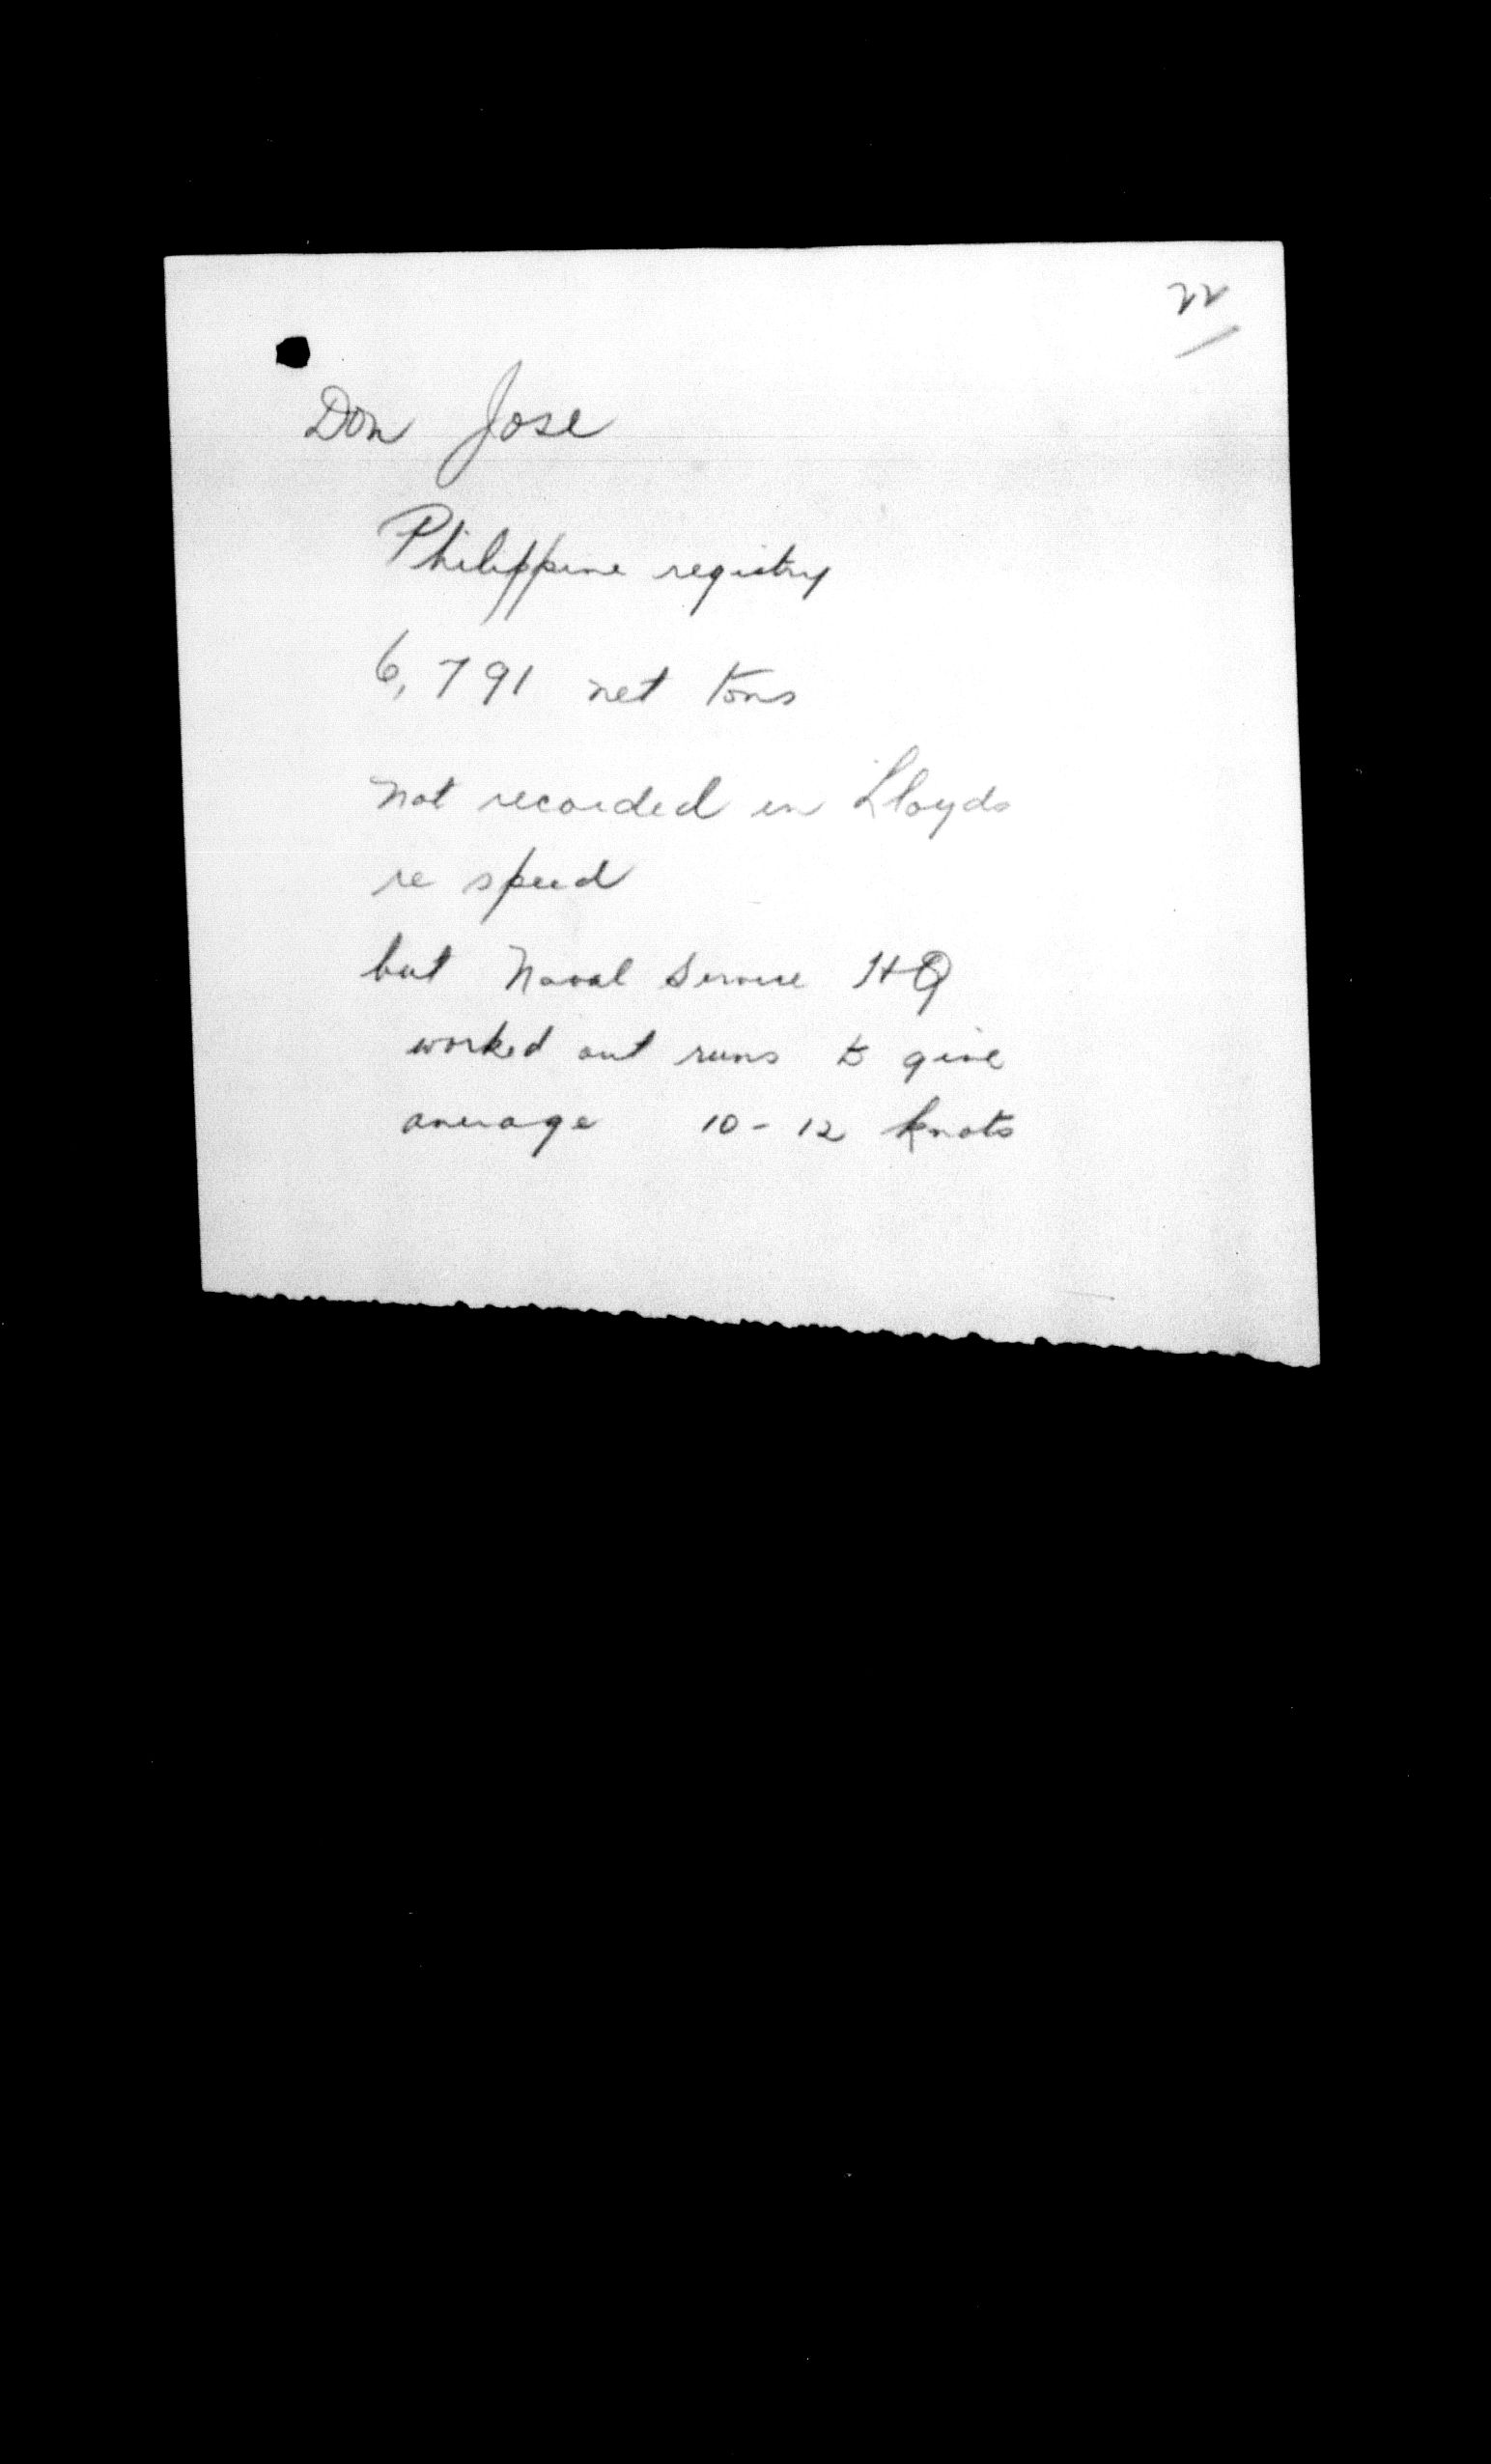 22
Don Jose
Philippine registry
6,791 net tons
not recorded in Lloyds
re speed
but Naval Service HQ
worked out runs to give
average 10-12 knots